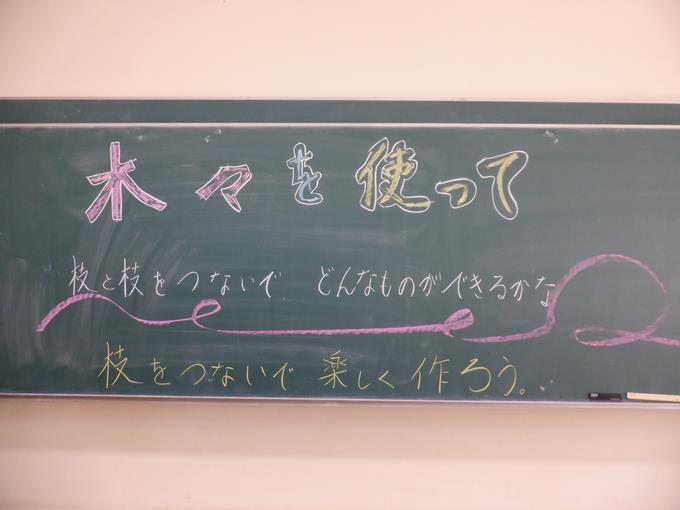 木々を使って
枝と枝をつないで どんなものができるかな
枝をつないで 楽しく作ろう。